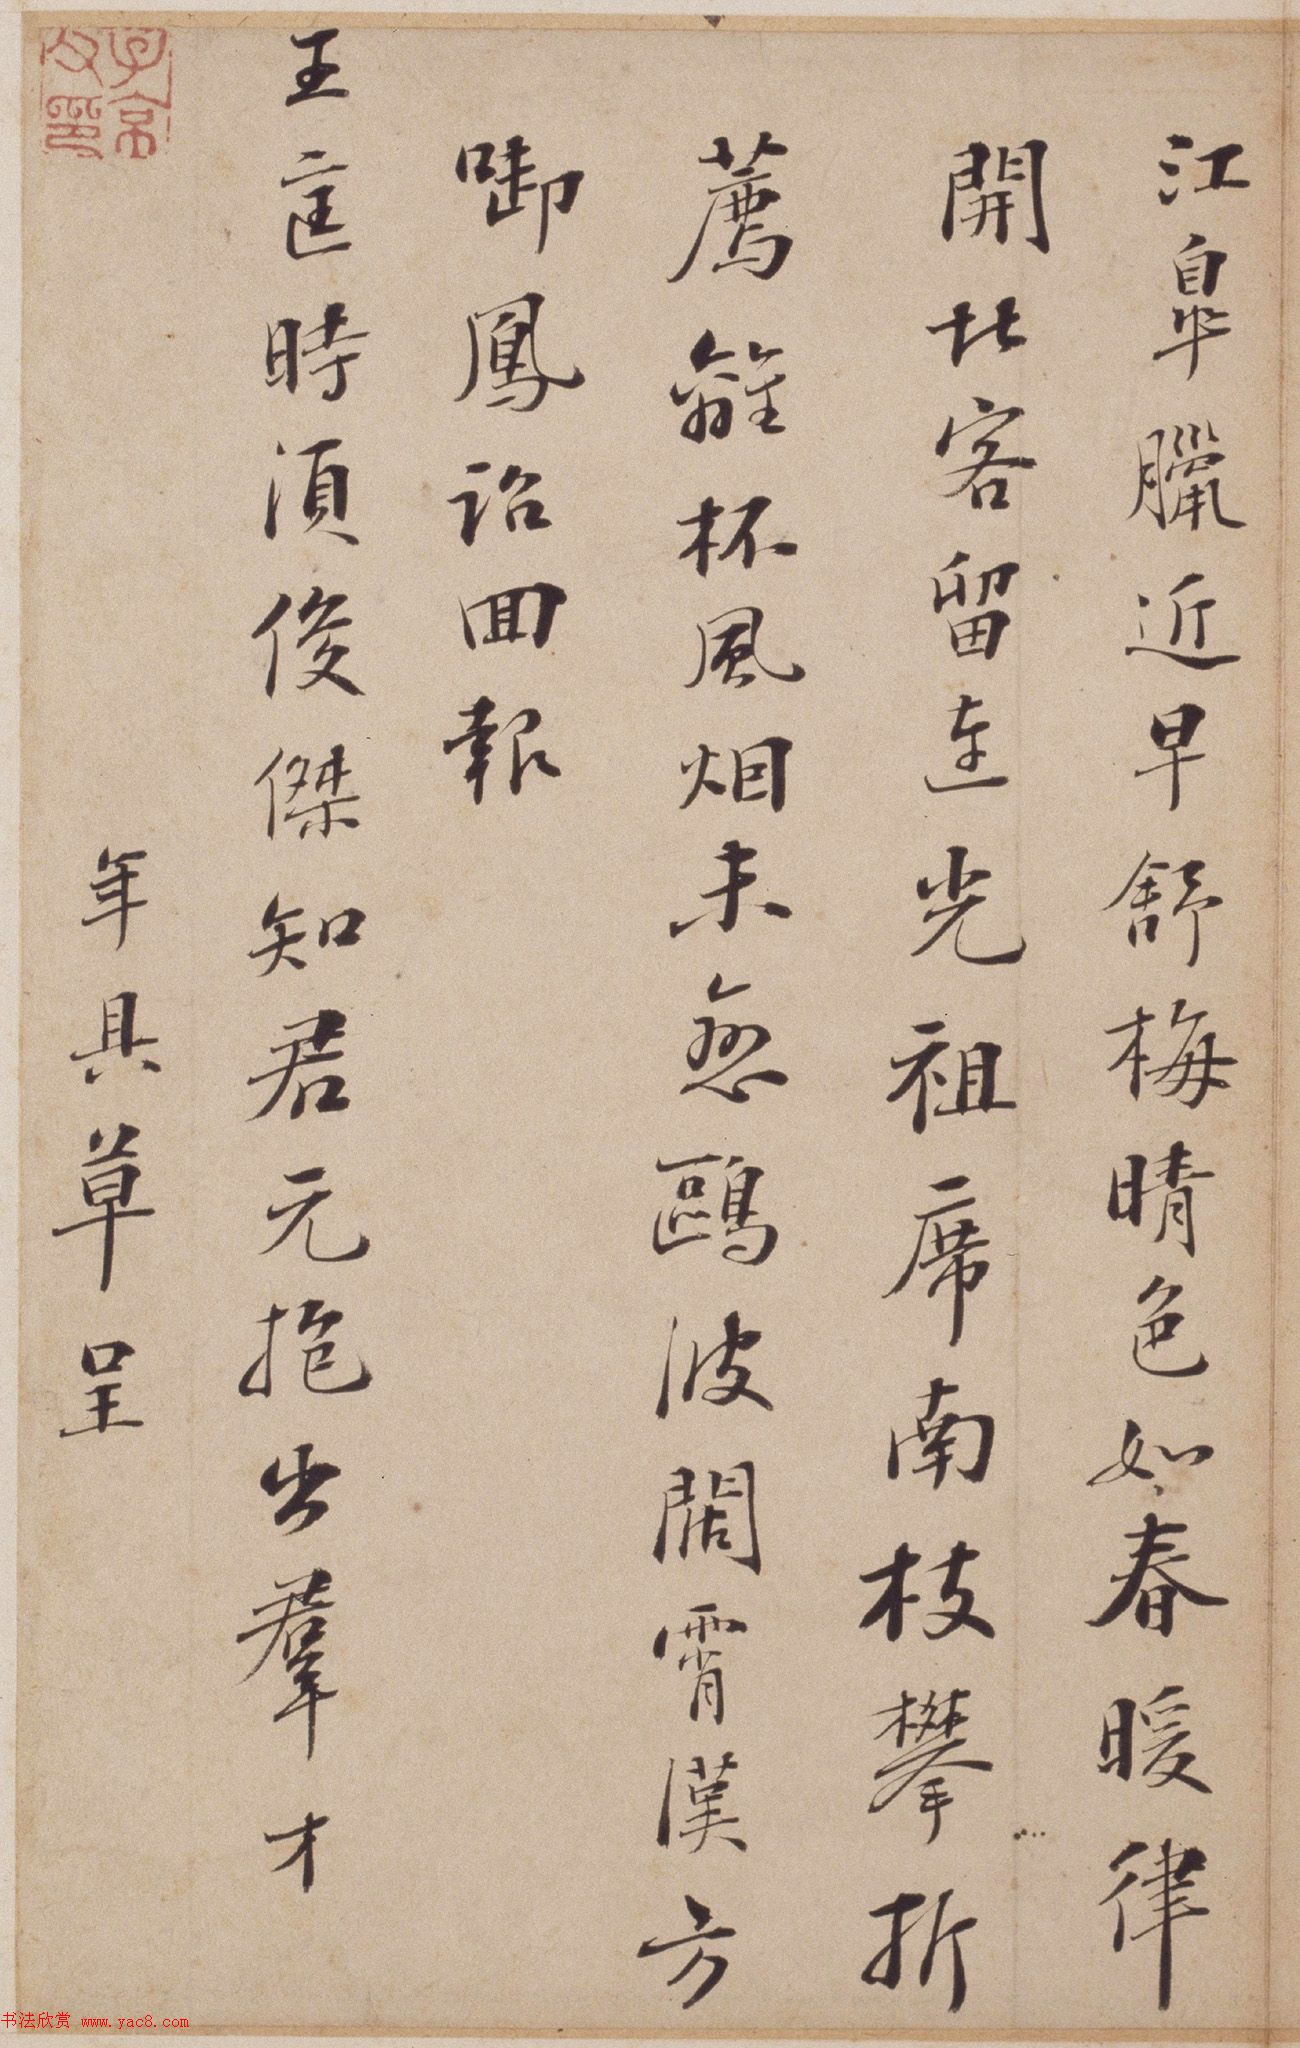 江皐臘近早舒梅晴色如春暖律
開北客留連光祖席南枝攀折
薦離杯風烟未忽鷗波闊霄漢方
啣鳳詔回報
王㝎時須俊傑知君元抱出羣才
年具草呈
子京父印
书法欣赏 www.yac8.com